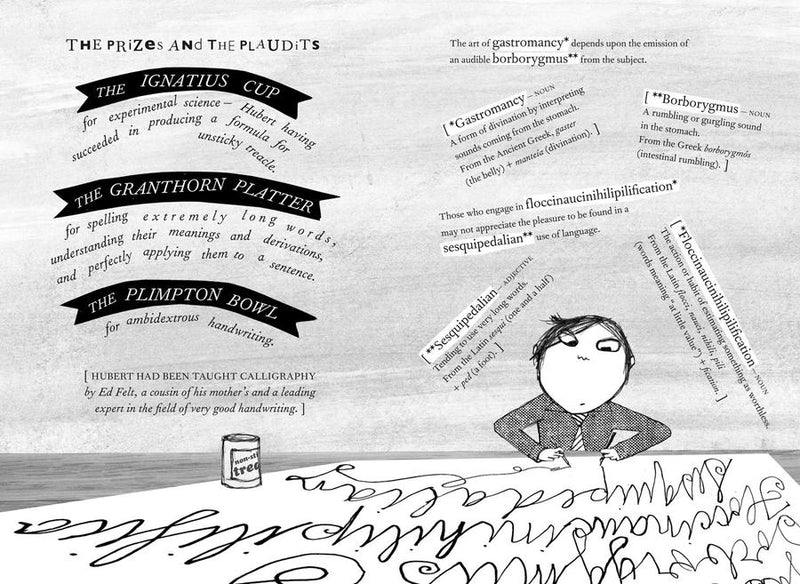 THE PRiZes AND THE PLAUDiTS
THE IGNATIUS CUP
for experimental science – Hubert having
succeeded in producing a formula for
unsticky treacle.
THE GRANTHORN PLATTER
for spelling extremely long words,
understanding their meanings and derivations,
and perfectly applying them to a sentence.
THE PLIMPTON BOWL
for ambidextrous handwriting.
[ HUBERT HAD BEEN TAUGHT CALLIGRAPHY
by Ed Felt, a cousin of his mother's and a leading
expert in the field of very good handwriting. ]
The art of gastromancy* depends upon the emission of
an audible borborygmus** from the subject.
[ *Gastromancy – NOUN
A form of divination by interpreting
sounds coming from the stomach.
From the Ancient Greek, gaster
(the belly) + manteia (divination). ]
[ **Borborygmus – NOUN
A rumbling or gurgling sound
in the stomach.
From the Greek borborygmós
(intestinal rumbling). ]
Those who engage in floccinaucinihilipilification*
may not appreciate the pleasure to be found in a
sesquipedalian** use of language.
[ **Sesquipedalian – ADJECTIVE
Tending to use very long words.
From the Latin sesqui (one and a half)
+ ped (a foot). ]
[ *Floccinaucinihilipilification – NOUN
The action or habit of estimating something as worthless.
From the Latin flocci, nauci, nihili, pili
(words meaning "at little value") + fication. ]
non-sti
tree
sesquipedalian
floccinaucinihilipilifica